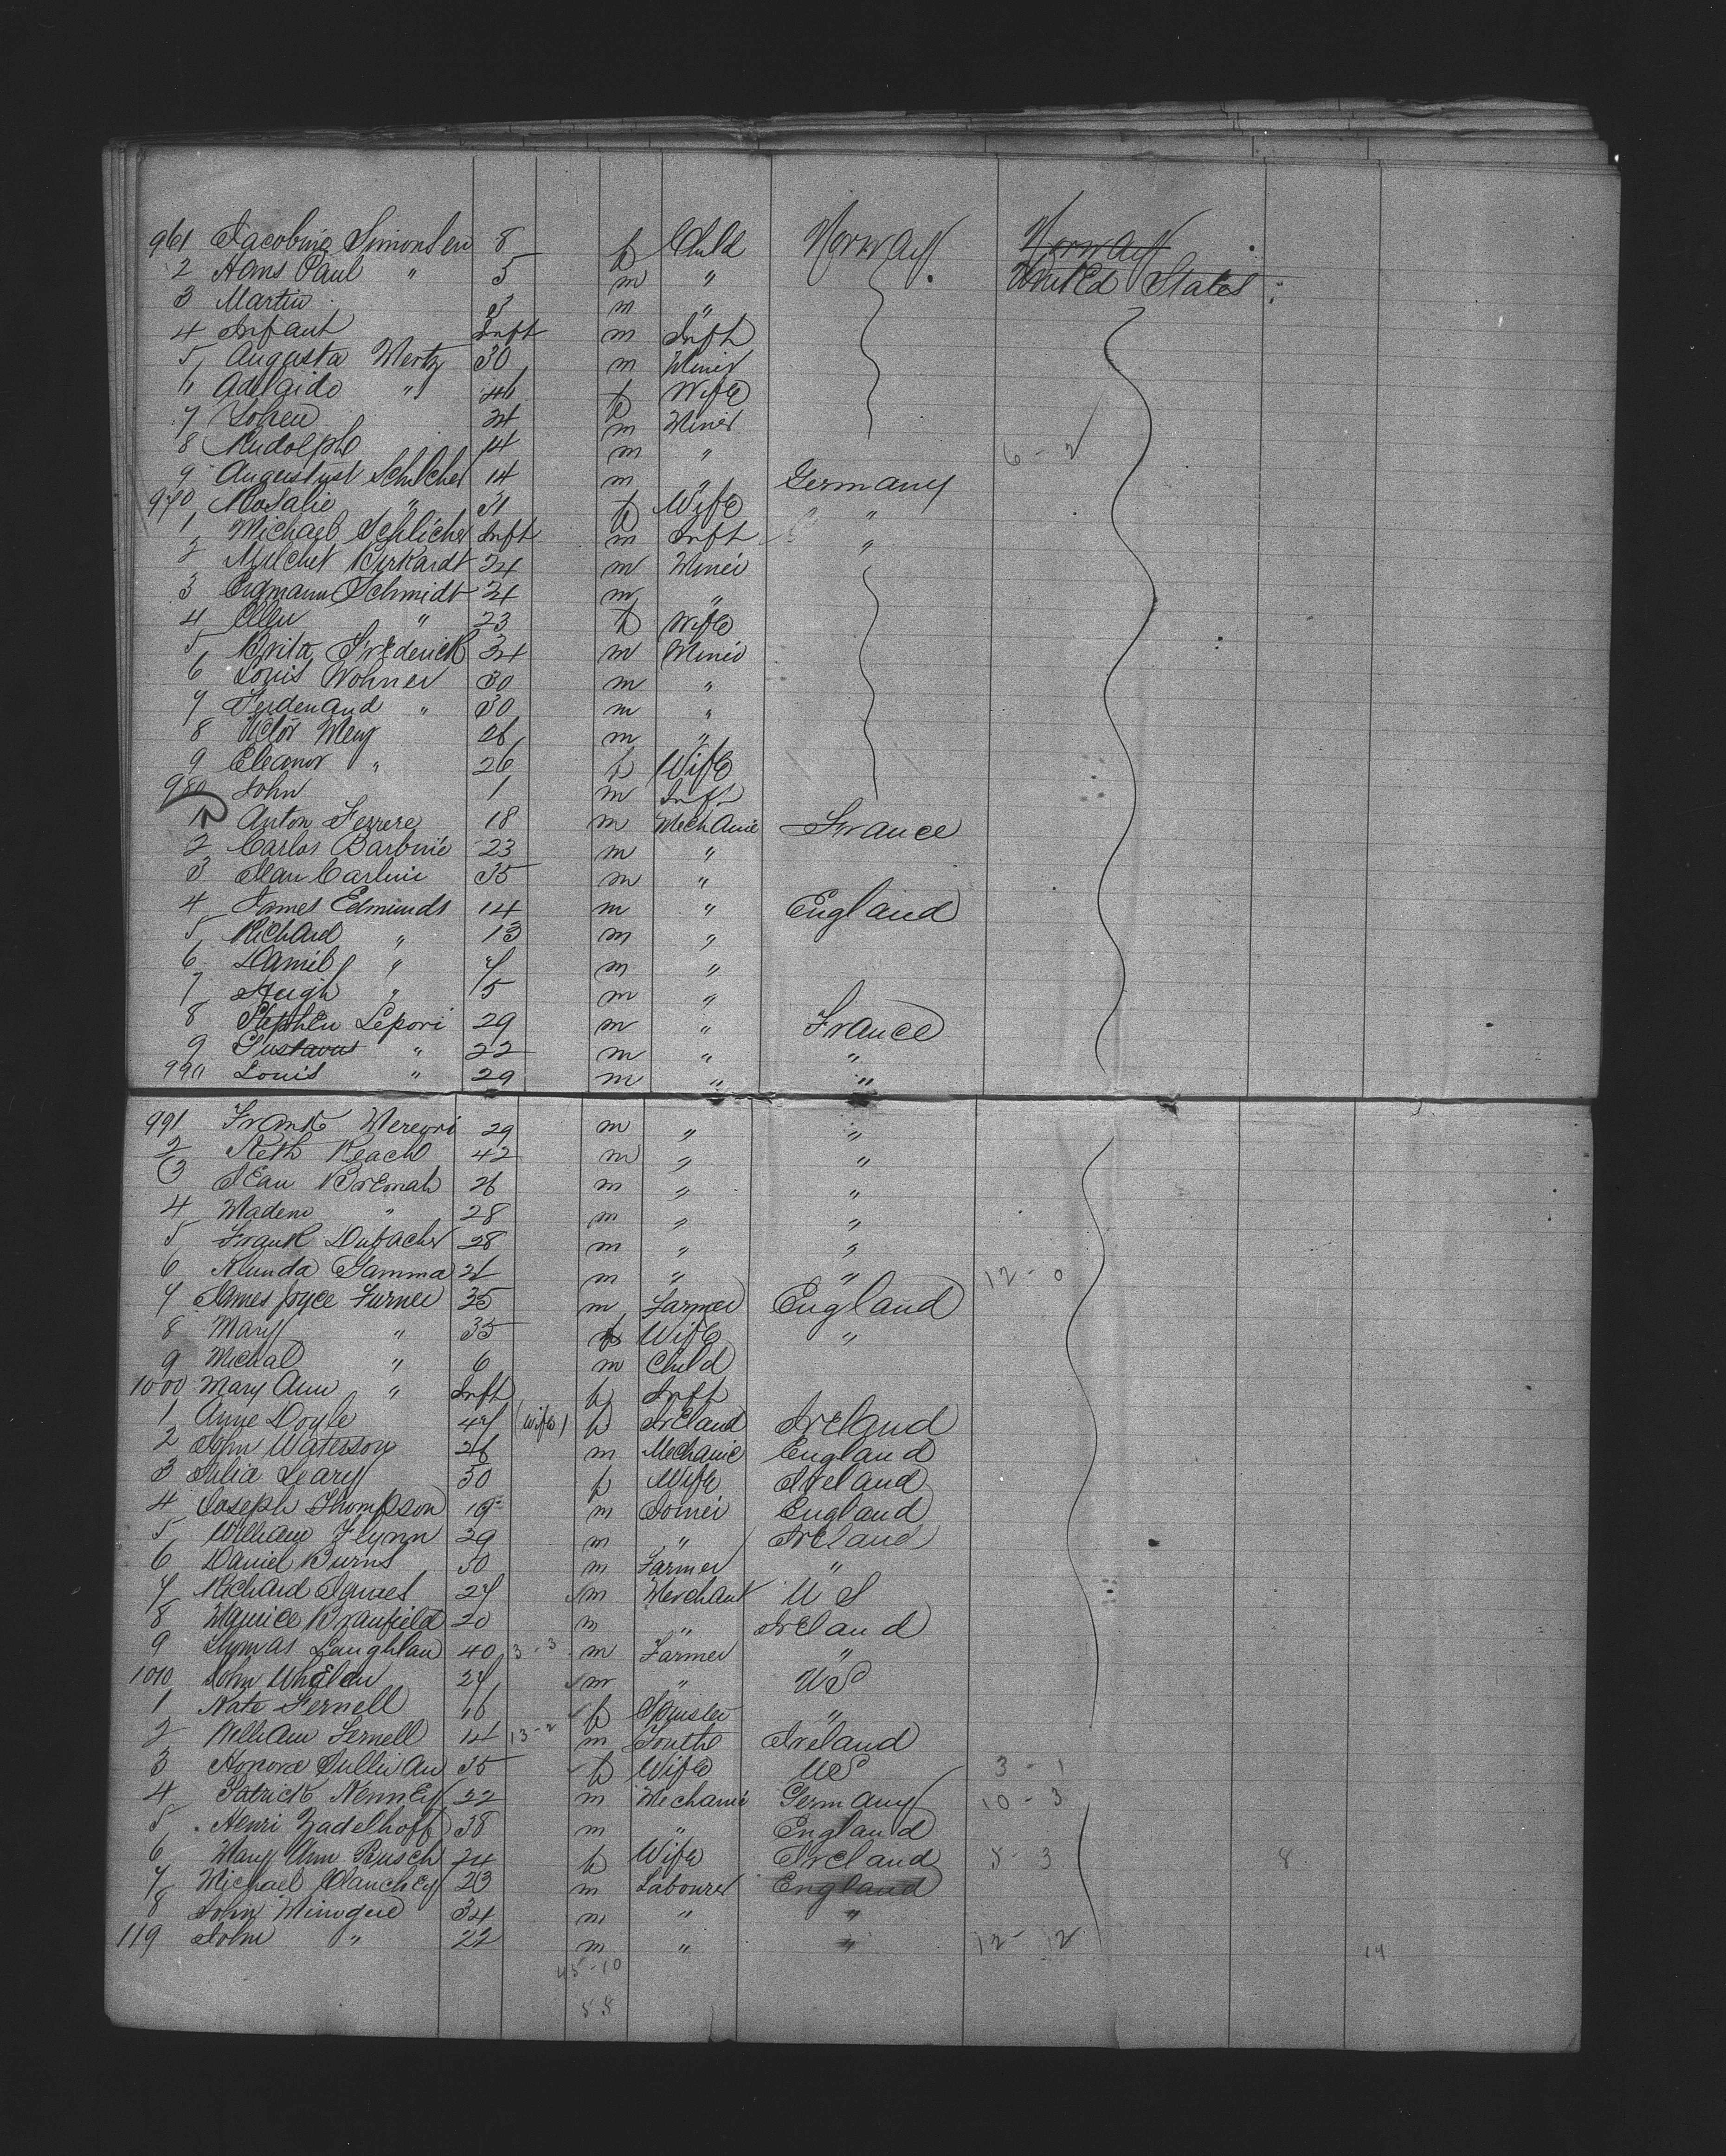 961 Jacobine Simonsen 8 f Child Norway Norway
2 Hans Paul " 5 m " United States
3 Martin 3 m "
4 Infant Inft m Inft
5 Augusta Wertz 30 m Miner
" Adelaide " 26 f Wife
7 24 m Miner
8 Rudolph 14 m " 6 - 2
9 Schilcher 14 m " Germany
970 Rosalie " 31 f Wife "
1 Michael Schlicher Inft m Inft "
2 Burkardt 24 m Miner
3 Erdmann Schmidt 24 m "
4 Ellen " 23 f Wife
5 Brita Frederick 34 m Miner
6 Louis Wohner 30 m "
7 Ferdenand " 30 m "
8 Victor Mery 26 m "
9 Eleanor " 26 f Wife
980 John 1 m Inft
1 Anton Ferrere 18 m Mechanic France
2 Carlos Barbinie 23 m "
3 Jean Carlini 35 m "
4 James Edmunds 14 m " England
5 Richard " 13 m "
6 Daniel " 7 m "
7 Hugh " 5 m "
8 Stephen Lepori 29 m " France
9 Gustavus " 22 m " "
990 Louis " 29 m " "
991 Frank Meregri 29 m " "
2 Keth Reach 42 m " "
3 Jean Bremah 26 m " "
4 Madeno " 28 m " "
5 Frank Dubacher 28 m " "
6 Gamma 21 m " " 12 - 0
7 James Joyce Turner 35 m Farmer England
8 Mary " 35 f Wife "
9 Michal " 6 m Child
1000 Mary Ann " Inft f Inft
1 Anne Doyle 47 (wife) f Ireland Ireland
2 John Waterson 26 m Mechanic England
3 Julia Leary 50 f Wife Ireland
4 Joseph Thompson 19 m Joiner England
5 William Flynn 29 m " Ireland
6 Daniel Burns 50 m Farmer "
7 Richard 27 m Merchant U S
8 Maurice Branfield 20 m " Ireland
9 Thomas Laughlan 40 3 - 3 m Farmer "
1010 John Whelen 27 m " U S
1 Kate Fernell 16 f Spinster "
2 William Fernell 14 13 - 2 m Youth Ireland
3 Honora Sullivan 35 f Wife U S 3 - 1
4 Patrick Kenney 22 m Mechanic Germany 10 - 3
5 Henri Zadelhoff 38 m " England
6 Mary Ann Rusch 24 f Wife Ireland 5 - 3 8
7 Michael Clanchey 23 m Labourer England
8 John Minogue 34 m " "
119 John " 22 m " " 12 - 12 14
45 - 10
58